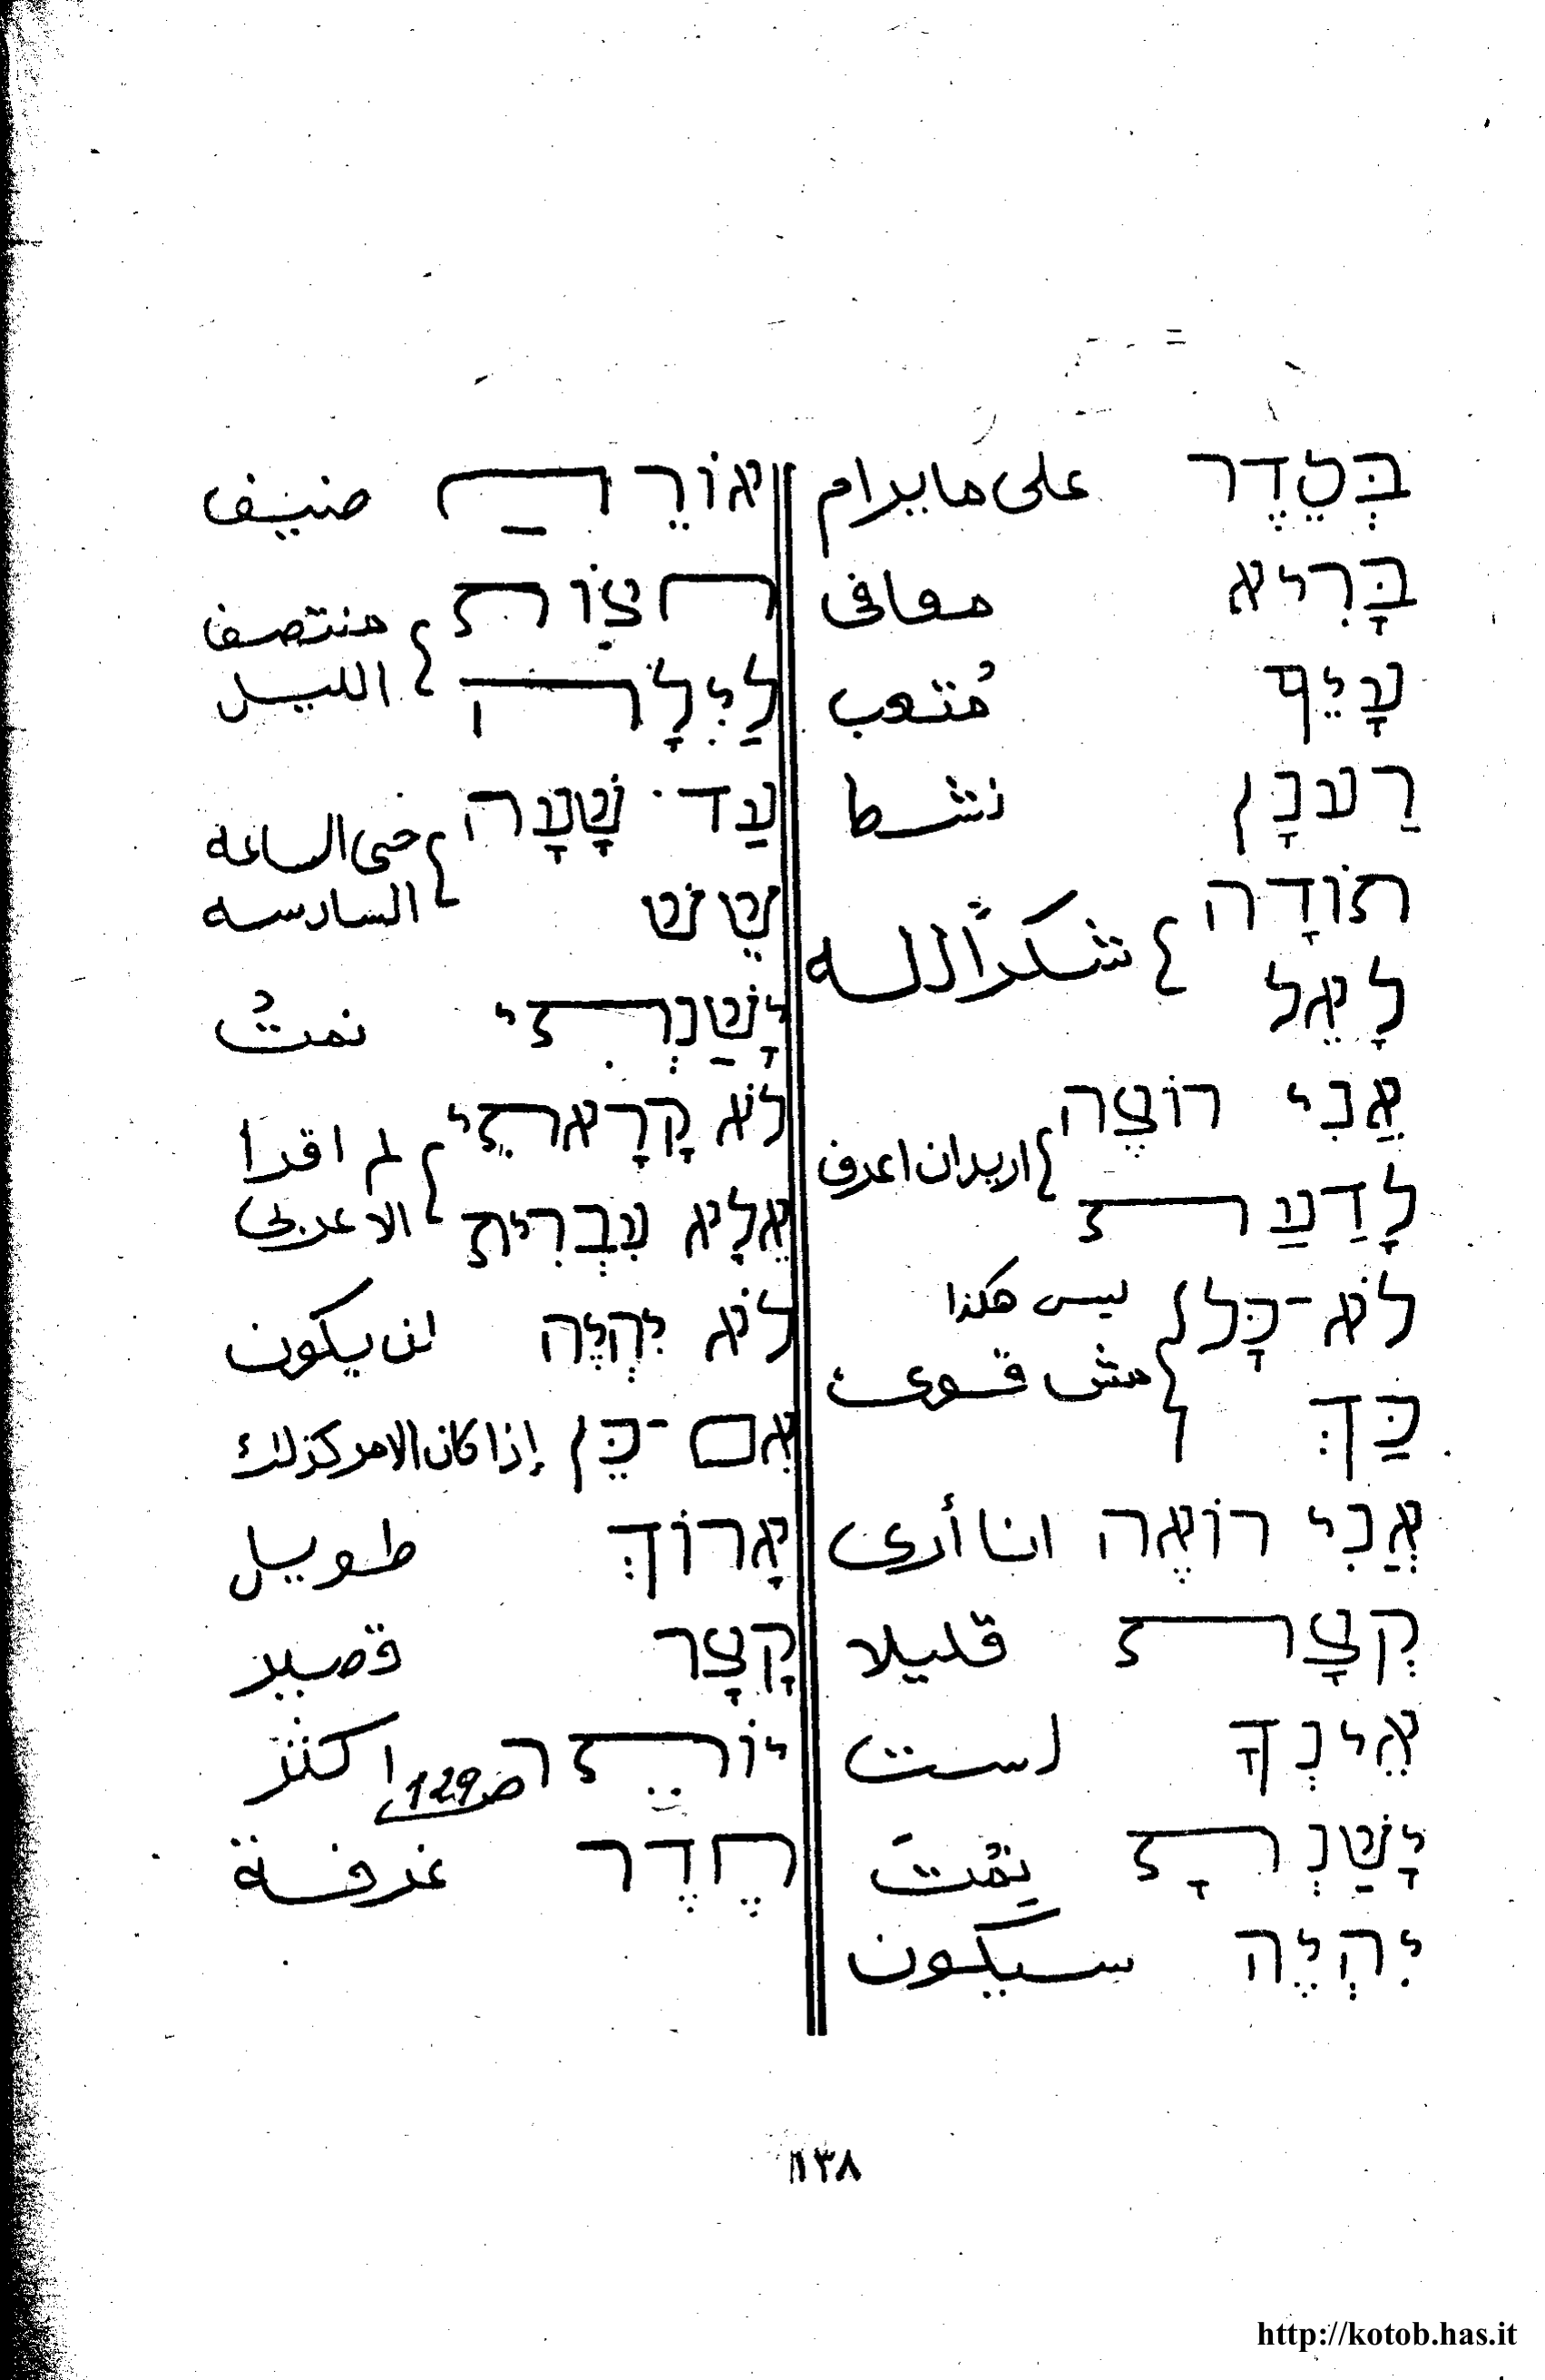 בְּסֵדֶר على ما يرام
בָּרִיא معافى
עָיֵף مُتعب
רַענָן نشط
תוֹדָה
לָאֵל شكراً لله
אֲנִי רוֹצֶה
לָדַעַת اريد ان اعرف
לֹא-כָּל ليس هكذا
כַּךְ مش قوى
אֲנִי רוֹאֶה انا أرى
קְצָת قليلا
אֵינְךָ لست
יָשַׁנְתָ نِمُتَ
יִהְיֶה سيكون
אוֹרֵחַ ضيف
חצוֹת منتصف
לַיִלָה الليل
עַד שָׁעָה حتى الساعة
שֵׁשׁ السادسه
יָשַׁנְתִי نمتُ
לֹא קָרָאתִי لم اقرا
אֵלָא עִבְרִית الا عربى
לֹא יִהְיֶה لن يكون
אִם-כֵּן إذا كان الامر كذلك
אָרוֹךְ طويل
קָצָר قصير
יוֹתֵר اكثر
ص 129
חֶדֶר غرفة
١٣٨
http://kotob.has.it